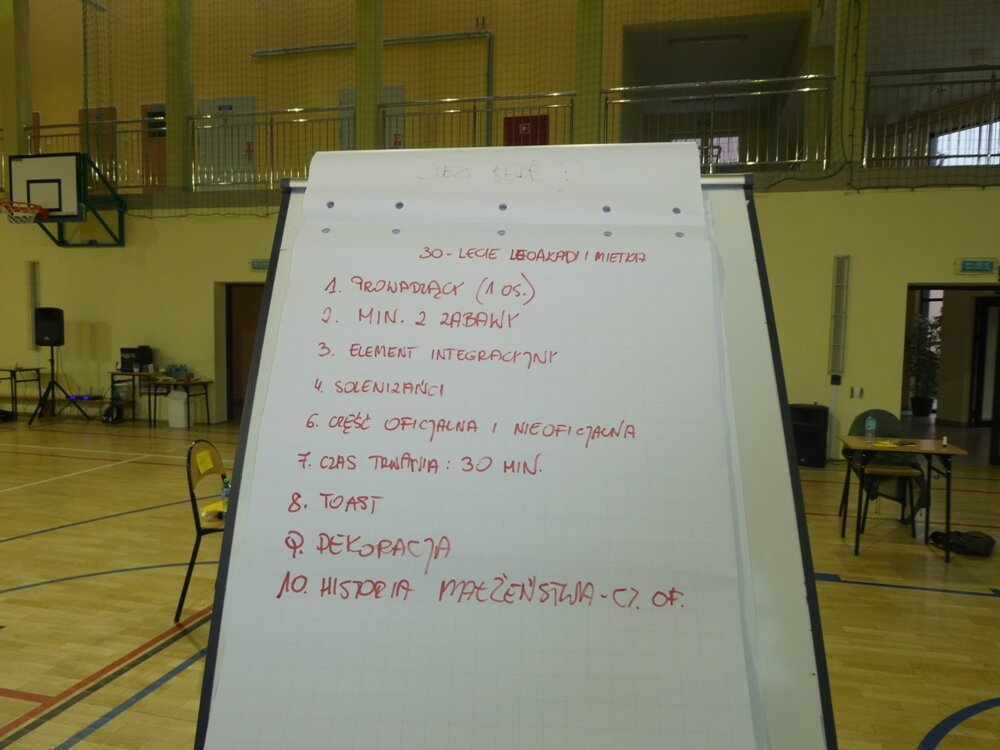 30-LECIE LEOAKADI I MIETKA
1. PROWADZĄCY (1 OS.)
2. MIN. 2 ZABAWY
3. ELEMENT INTEGRACYJNY
4. SOLENIZAŃCI
6. CZĘŚĆ OFICJALNA I NIEOFICJALNA
7. CZAS TRWANIA: 30 MIN.
8. TOAST
9. DEKORACJA
10. HISTORIA MAŁŻEŃSTWA - CZ. OF.